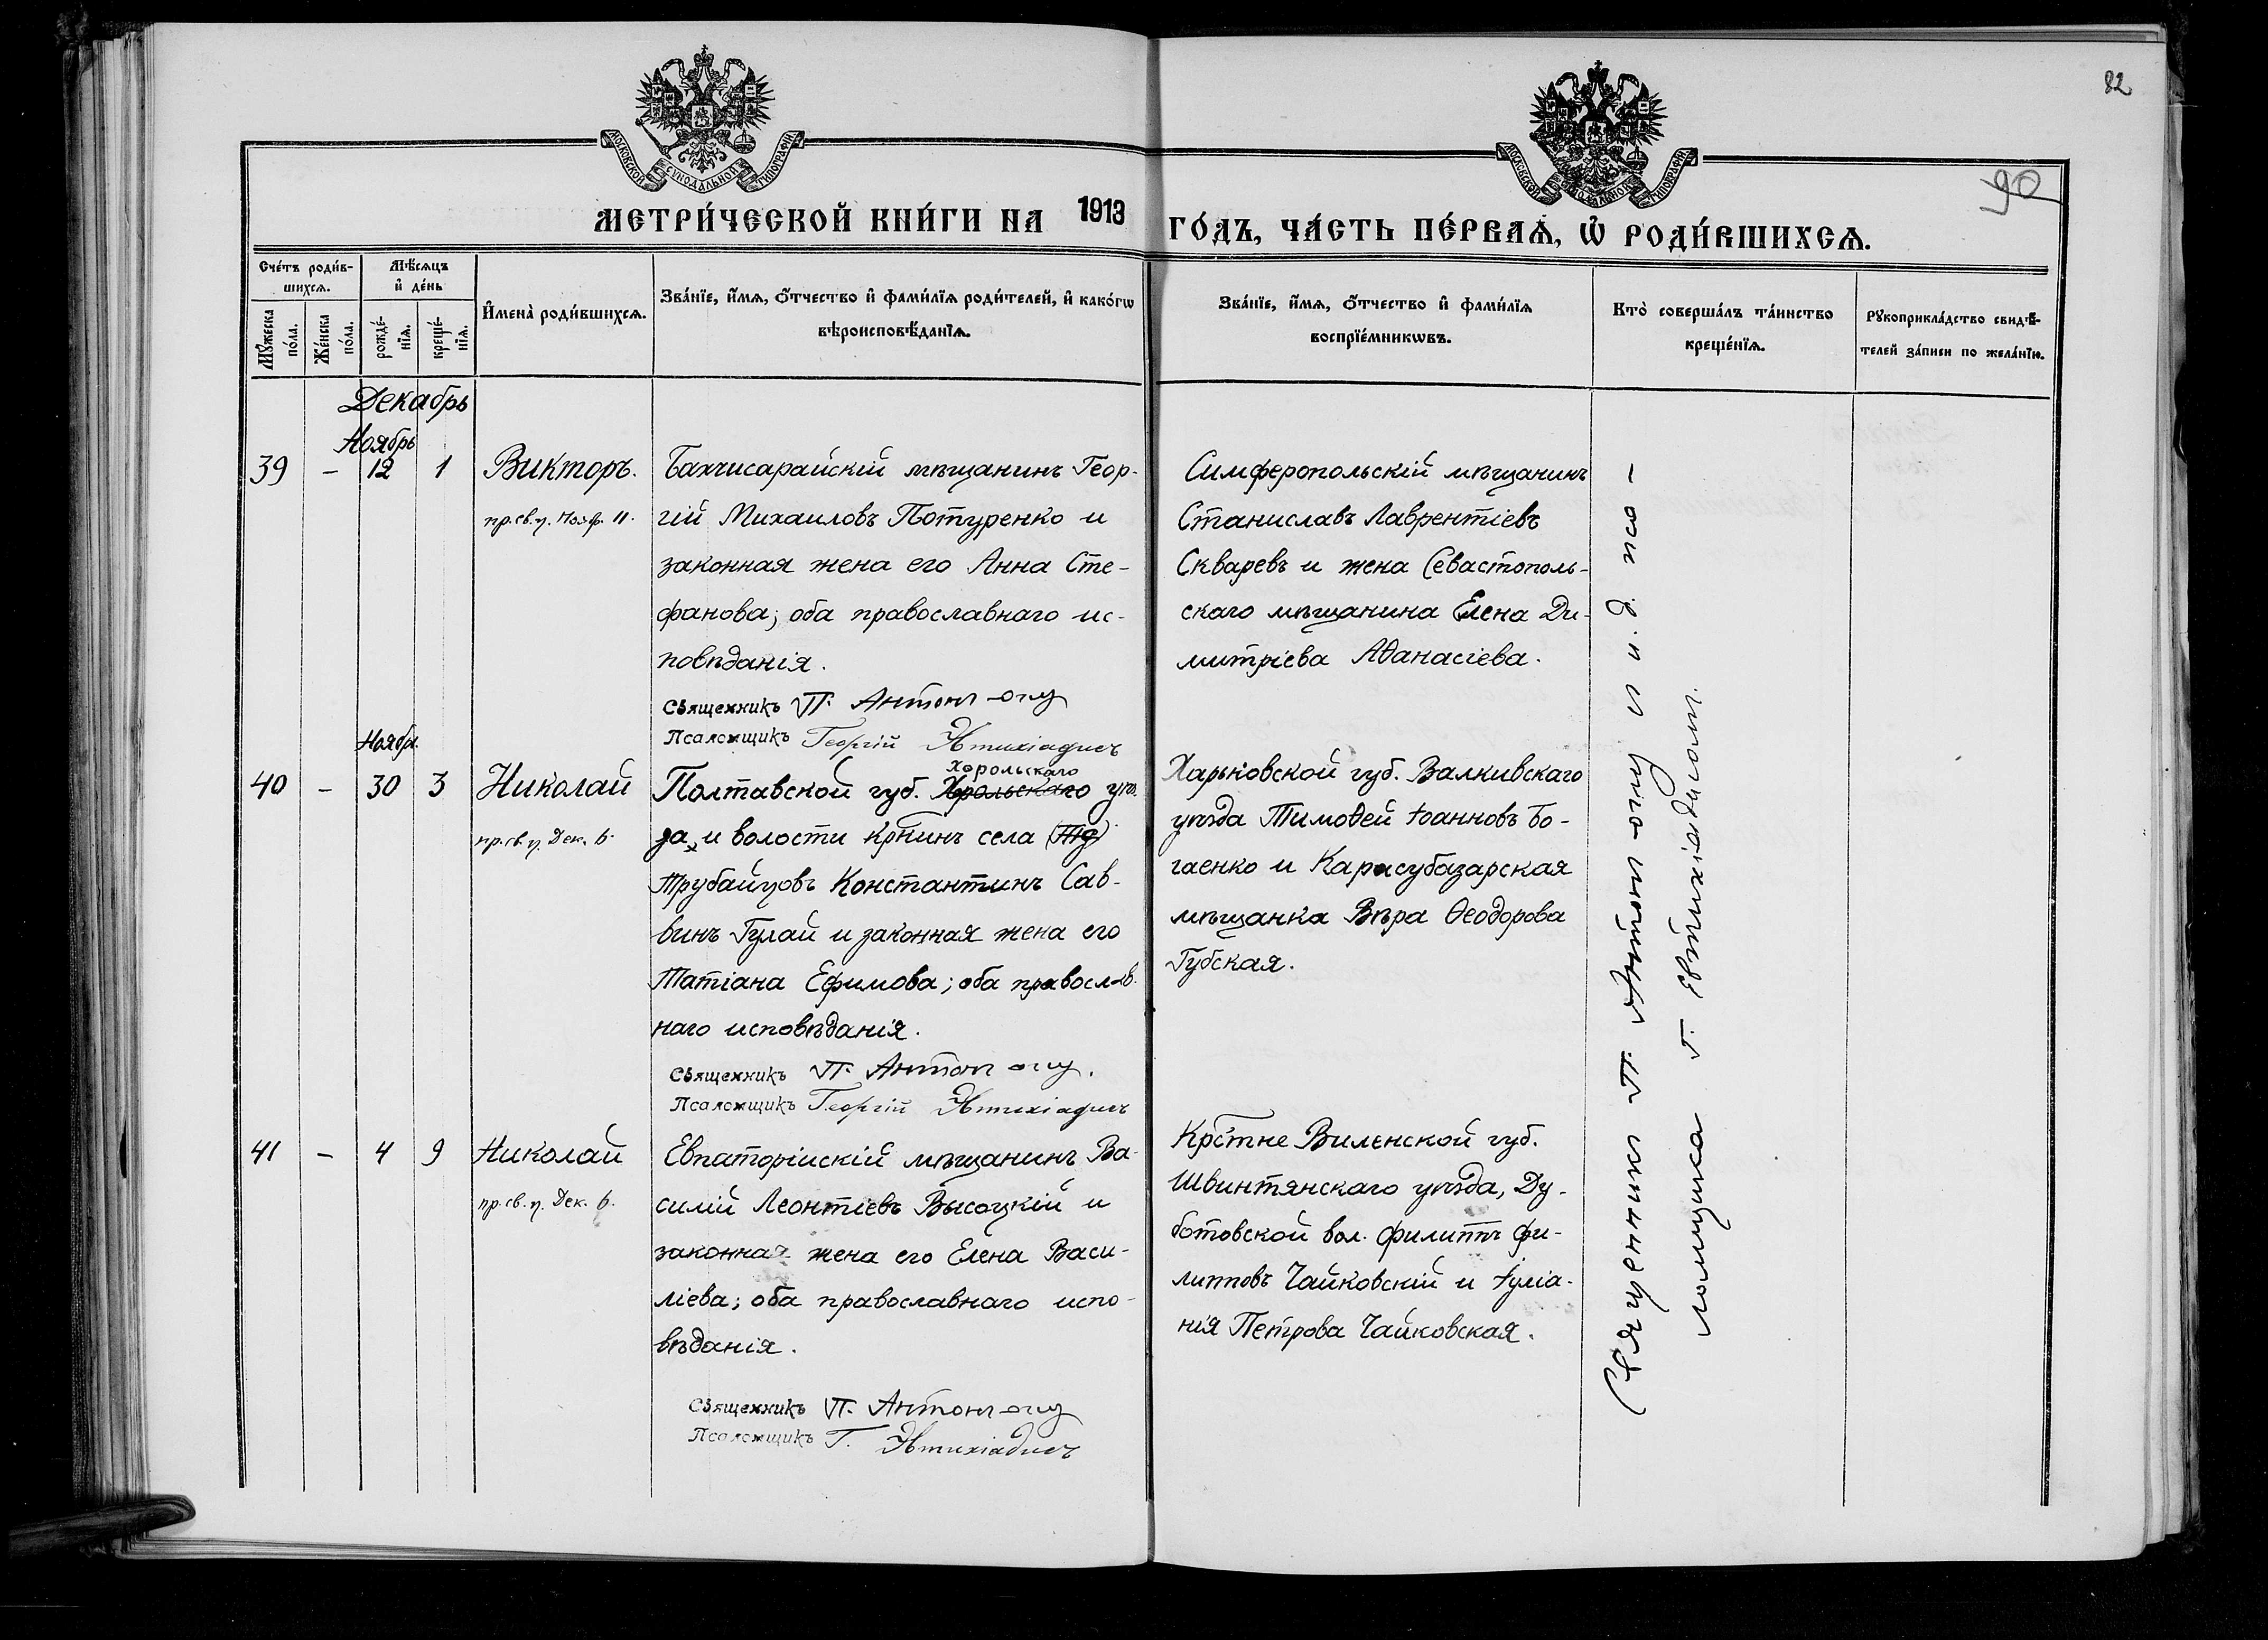 82
90
МОСКОВСКОЙ СѴНОДАЛЬНОЙ ТИПОГРАФІИ
МОСКОВСКОЙ СѴНОДАЛЬНОЙ ТИПОГРАФІИ
МЕТРИ́ЧЕСКОЙ КНИ́ГИ НА 1913 ГО́ДЪ, ЧА́СТЬ ПЕ́РВАѦ, Ѡ҆ РОДИ́ВШИХСѦ.
Сче́тъ роди́в-
шихсѧ.
Мꙋ́жеска по́ла.
Же́нска по́ла.
Мѣ́сѧцъ
и҆ де́нь
рожде́-
нїѧ.
креще́-
нїѧ.
И҆мена̀ роди́вшихсѧ.
Зва́нїе, и҆́мѧ, ѻ҆́тчество и҆ фами́лїѧ роди́телей, и҆ како́гѡ
вѣроисповѣ́данїѧ.
Зва́нїе, и҆́мѧ, ѻ҆́тчество и҆ фами́лїѧ
воспрїе́мникѡвъ.
Кто̀ соверша́лъ та́инство
креще́нїѧ.
Рꙋкоприкла́дство свидѣ́-
телей за́писи по жела́нїю.
Декабрь
Ноябрь
39 – 12 1 Викторъ.
пр. св. п. Нояб. 11.
Бахчисарайскій мѣщанинъ Геор-
гій Михаиловъ Потуренко и
законная жена его Анна Сте-
фанова; оба православнаго ис-
повѣданія.
Священникъ П. Антон
Псаломщикъ Георгій Эвтихіадисъ
Симферопольскій мѣщанинъ
Станиславъ Лаврентіевъ
Скваревъ и жена Севастополь-
скаго мѣщанина Елена Ди-
митріева Аѳанасіева.
Ноябр.
40 – 30 3 Николай
пр. св. п. Дек. 6.
Хорольскаго
Полтавской губ. Хрольскаго уѣ.
зда, и волости крнинъ села Тр
Трубайцовъ Константинъ Сав-
винъ Гулай и законная жена его
Татіана Ефимова; оба православ.
наго исповѣданія.
Священникъ П. Антон
Псаломщикъ Георгій Эвтихіадисъ
Харьковской губ. Валкивскаго
уѣзда Тимоѳей Іоанновъ Бо-
гаенко и Карасубазарская
мѣщанка Вѣра Ѳеодорова
Губская.
41 – 4 9 Николай
пр. св. п. Дек. 6.
Евпаторійскій мѣщанинъ Ва-
силій Леонтіевъ Высоцкій и
законная жена его Елена Васи-
ліева; оба православнаго испо-
вѣданія.
Священникъ П. Антон
Псаломщикъ Г. Эвтихіадисъ
Крстне Виленской губ.
Швинтянскаго уѣзда, Ду-
ботовской вол. Филиппъ Фи-
липповъ Чайковскій и Іуліа-
нія Петрова Чайковская.
Священник П. Антон и и. д. пса-
ломщика Г. Евтихіадисом.